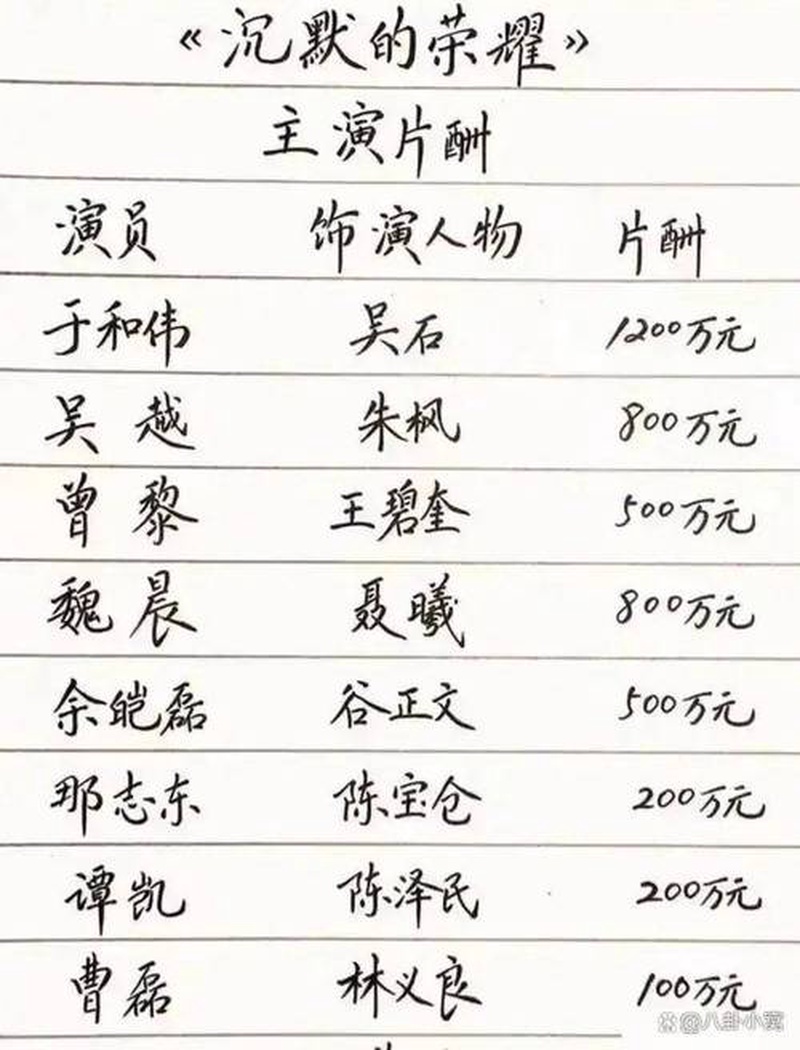 《沉默的荣耀》
主演片酬
演员 饰演人物 片酬
于和伟 吴石 1200万元
吴越 朱枫 800万元
曾黎 王碧奎 500万元
魏晨 聂曦 800万元
余皑磊 谷正文 500万元
那志东 陈宝仓 200万元
谭凯 陈泽民 200万元
曹磊 林义良 100万元
@八卦小窝